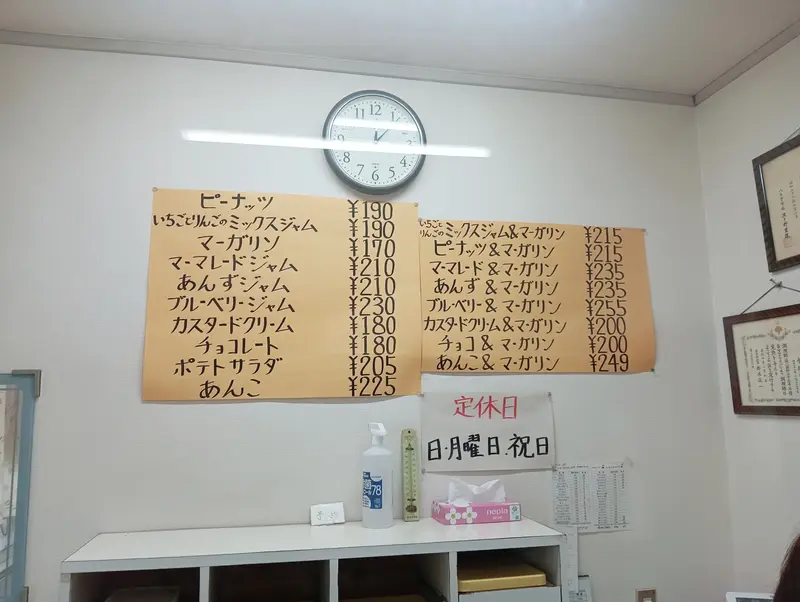 ピーナッツ ¥190
いちごとりんごのミックスジャム ¥190
マーガリン ¥170
マーマレードジャム ¥210
あんずジャム ¥210
ブルーベリージャム ¥230
カスタードクリーム ¥180
チョコレート ¥180
ポテトサラダ ¥205
あんこ ¥225
いちごとりんごのミックスジャム&マーガリン ¥215
ピーナッツ&マーガリン ¥215
マーマレード&マーガリン ¥235
あんず&マーガリン ¥235
ブルーベリー&マーガリン ¥255
カスタードクリーム&マーガリン ¥200
チョコ&マーガリン ¥200
あんこ&マーガリン ¥249
定休日
日・月曜日.祝日
12 1 2 3 4 5 6 7 8 9 10 11
78
nepia